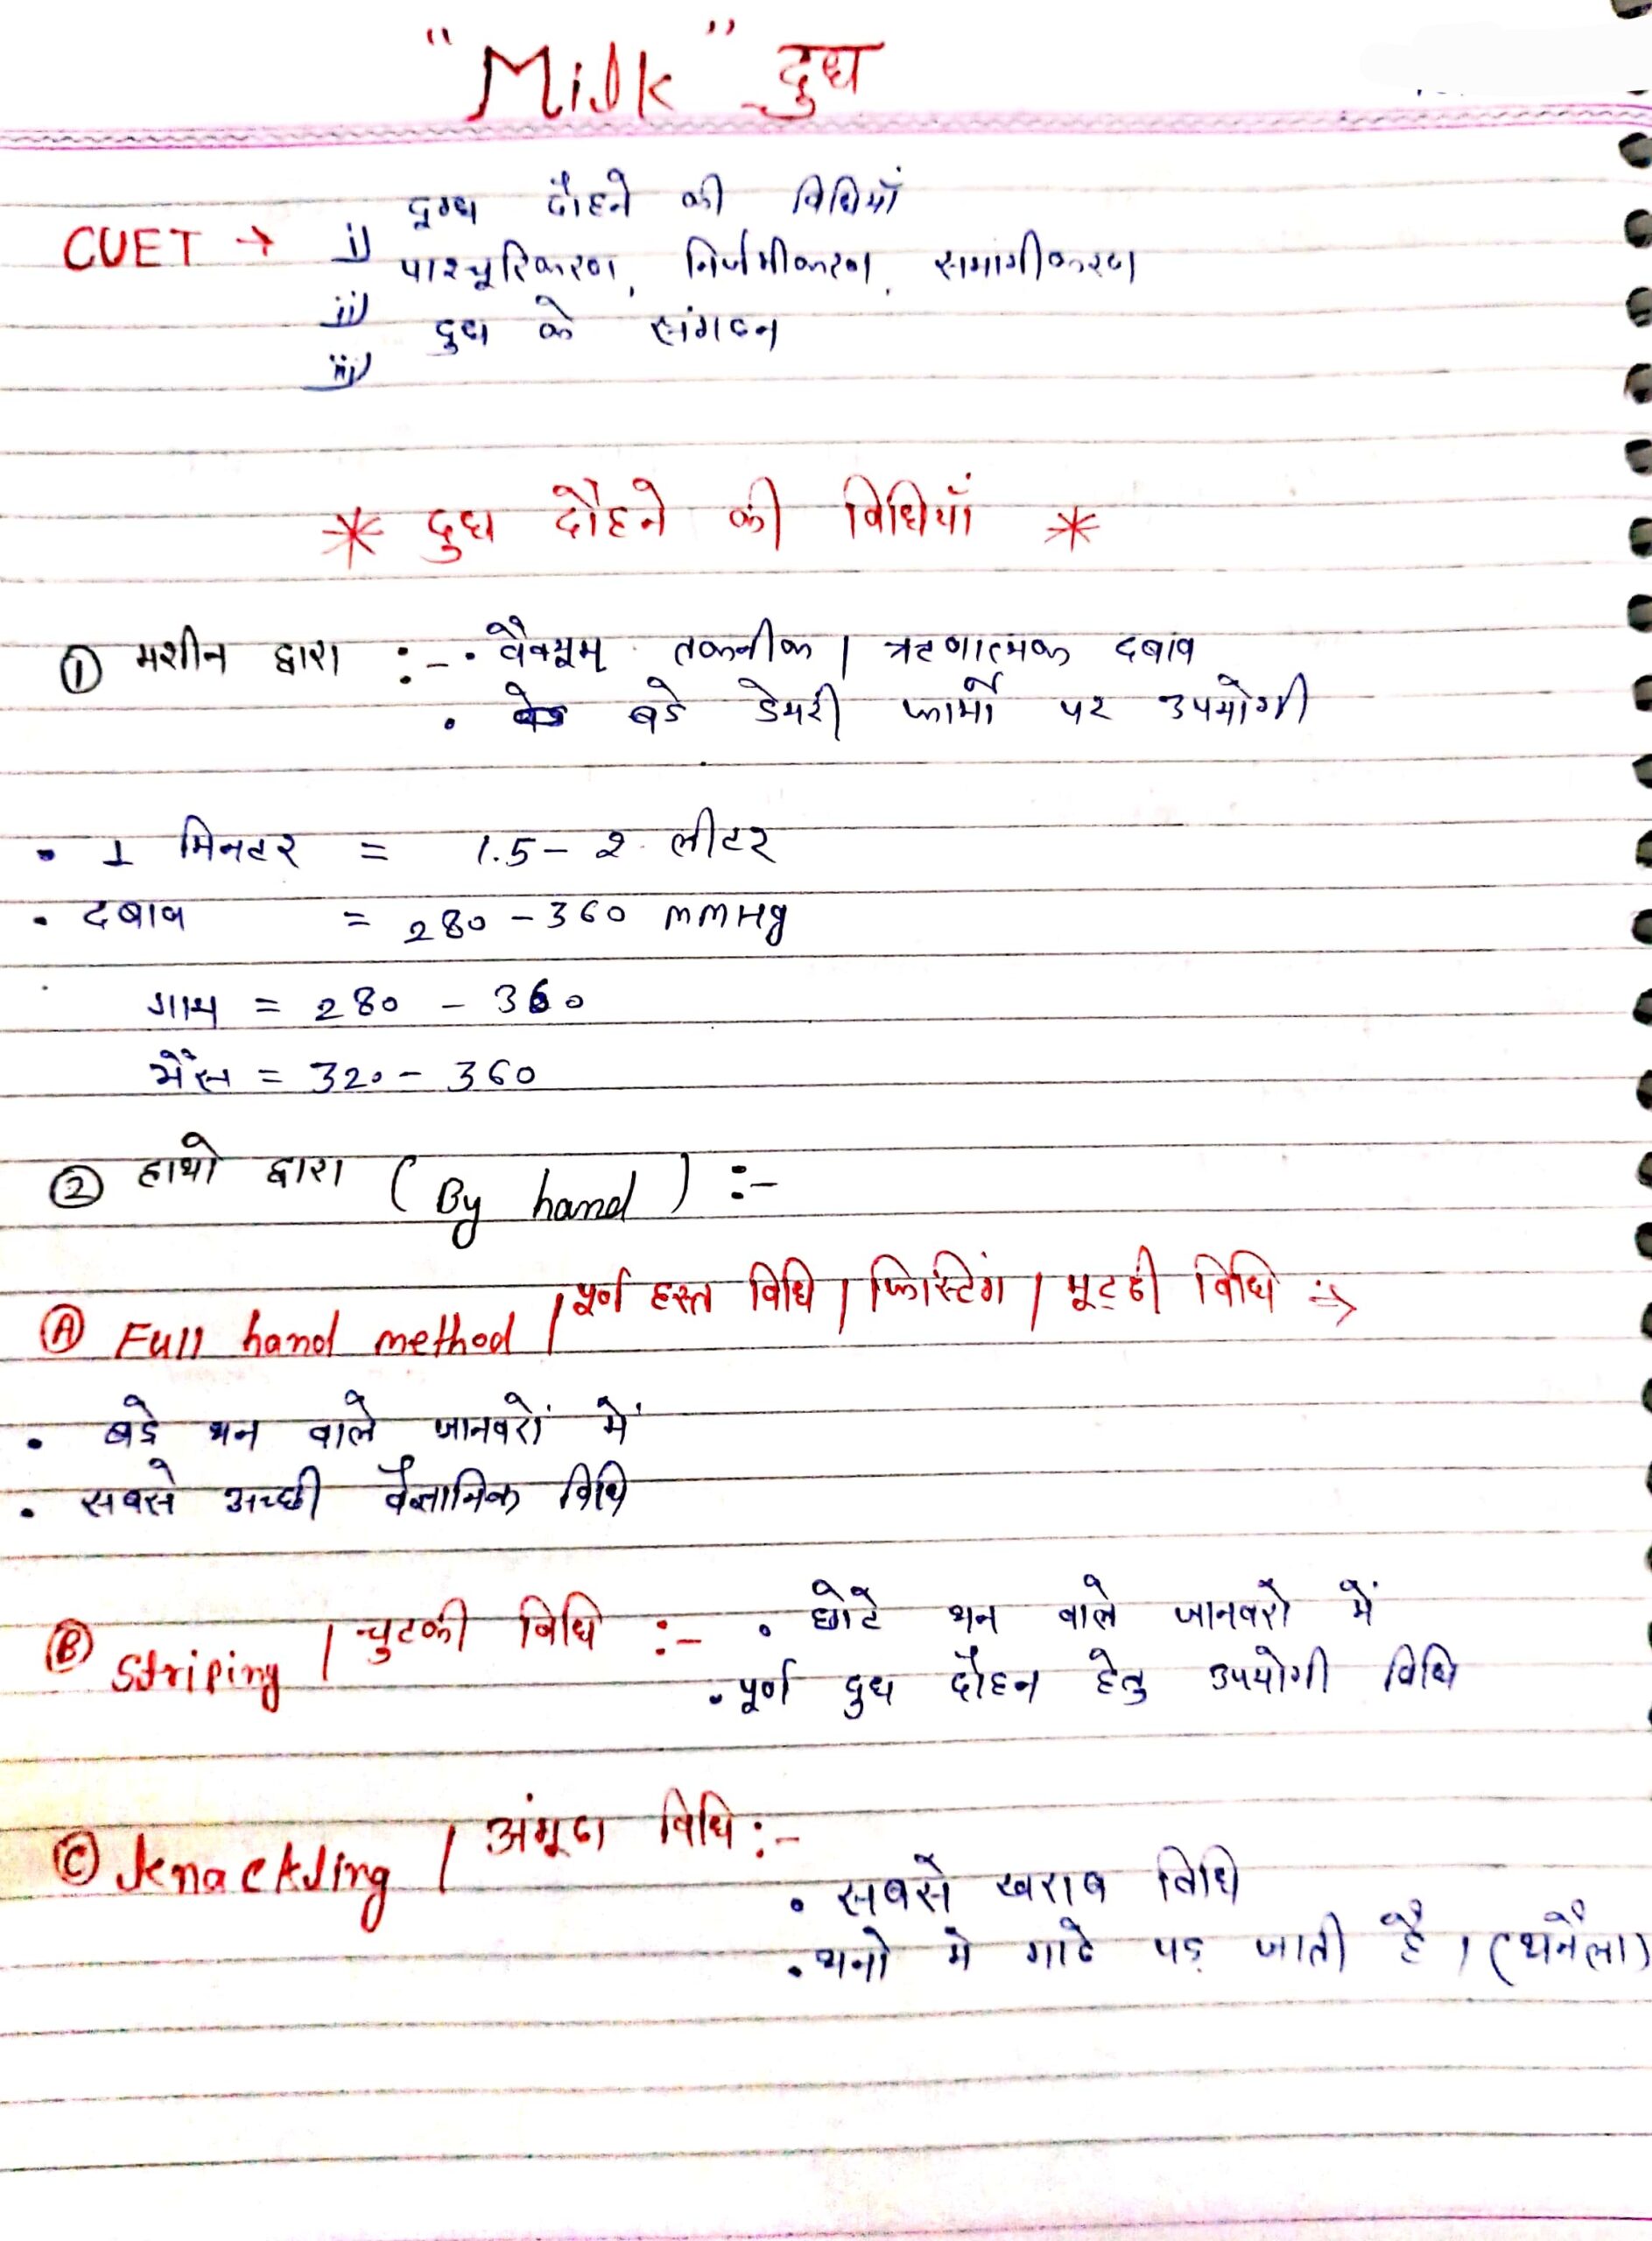 "Milk" दुध
CUET → i) दूग्ध दौहने की विधियाँ
ii) पाश्चूरिकरण, निर्जमीकरण, समागीकरण
iii) दुध के संगठन
* दुध दौहने की विधियाँ *
① मशीन द्वारा :- • वैक्यूम तकनीक / ऋणात्मक दबाव
• बडे डेयरी फार्मो पर उपयोगी
• 1 मिनटर = 1.5 - 2 लीटर
• दबाव = 280 - 360 mmHg
गाय = 280 - 360
भैंस = 320 - 360
② हाथो द्वारा (By hand) :-
Ⓐ Full hand method / पूर्ण हस्त विधि / फिस्टिंग / मूट्ठी विधि :→
• बडे थन वाले जानवरों में
• सबसे अच्छी वैज्ञानिक विधि
Ⓑ Striping / चुटकी विधि :- • छोटे थन वाले जानवरों में
• पूर्ण दुध दौहन हेतु उपयोगी विधि
Ⓒ knackling / अंगूठा विधि :-
• सबसे खराब विधि
• थनो मे गाठे पड़ जाती है । (थनैला)